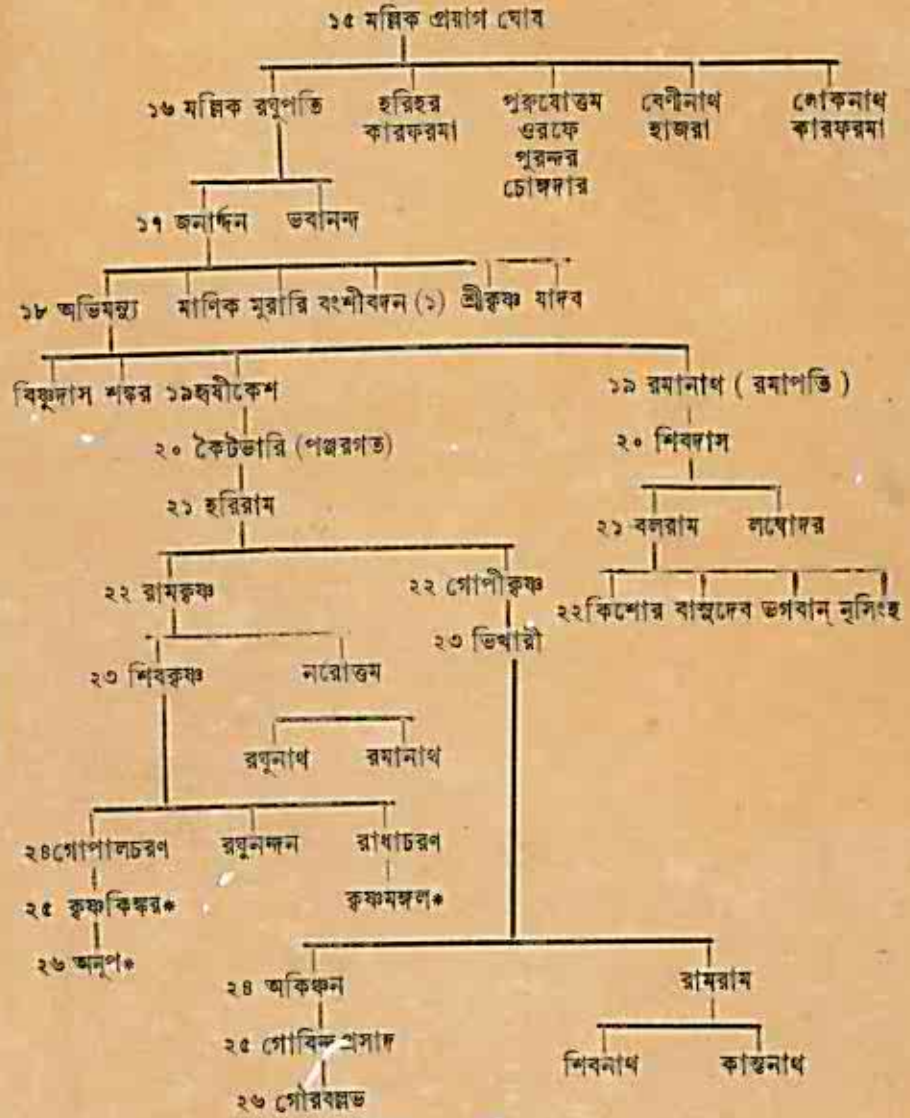 ১৫ মল্লিক প্রয়াগ ঘোষ
১৬ মল্লিক রঘুপতি হরিহর কারফরমা পুরুষোত্তম ওরফে পুরন্দর চোঙ্গদার বেণীনাথ হাজরা লোকনাথ কারফরমা
১৭ জনার্দ্দন ভবানন্দ
১৮ অভিমন্যু মাণিক মুরারি বংশীবদন (১) শ্রীকৃষ্ণ যাদব
বিষ্ণুদাস শঙ্কর ১৯হৃষীকেশ ১৯ রমানাথ ( রমাপতি )
২০ কৈটভারি (পঞ্জরগত) ২০ শিবদাস
২১ হরিরাম ২১ বলরাম লম্বোদর
২২ রামকৃষ্ণ ২২ গোপীকৃষ্ণ ২২কিশোর বাসুদেব ভগবান্ নৃসিংহ
২৩ শিবকৃষ্ণ নরোত্তম ২৩ ভিখারী
রঘুনাথ রমানাথ
২৪গোপালচরণ রঘুনন্দন রাধাচরণ
২৫ কৃষ্ণকিঙ্কর* কৃষ্ণমঙ্গল*
২৬ অনূপ*
২৪ অকিঞ্চন রামরাম
২৫ গোবিন্দপ্রসাদ শিবনাথ কান্তনাথ
২৬ গৌরবল্লভ